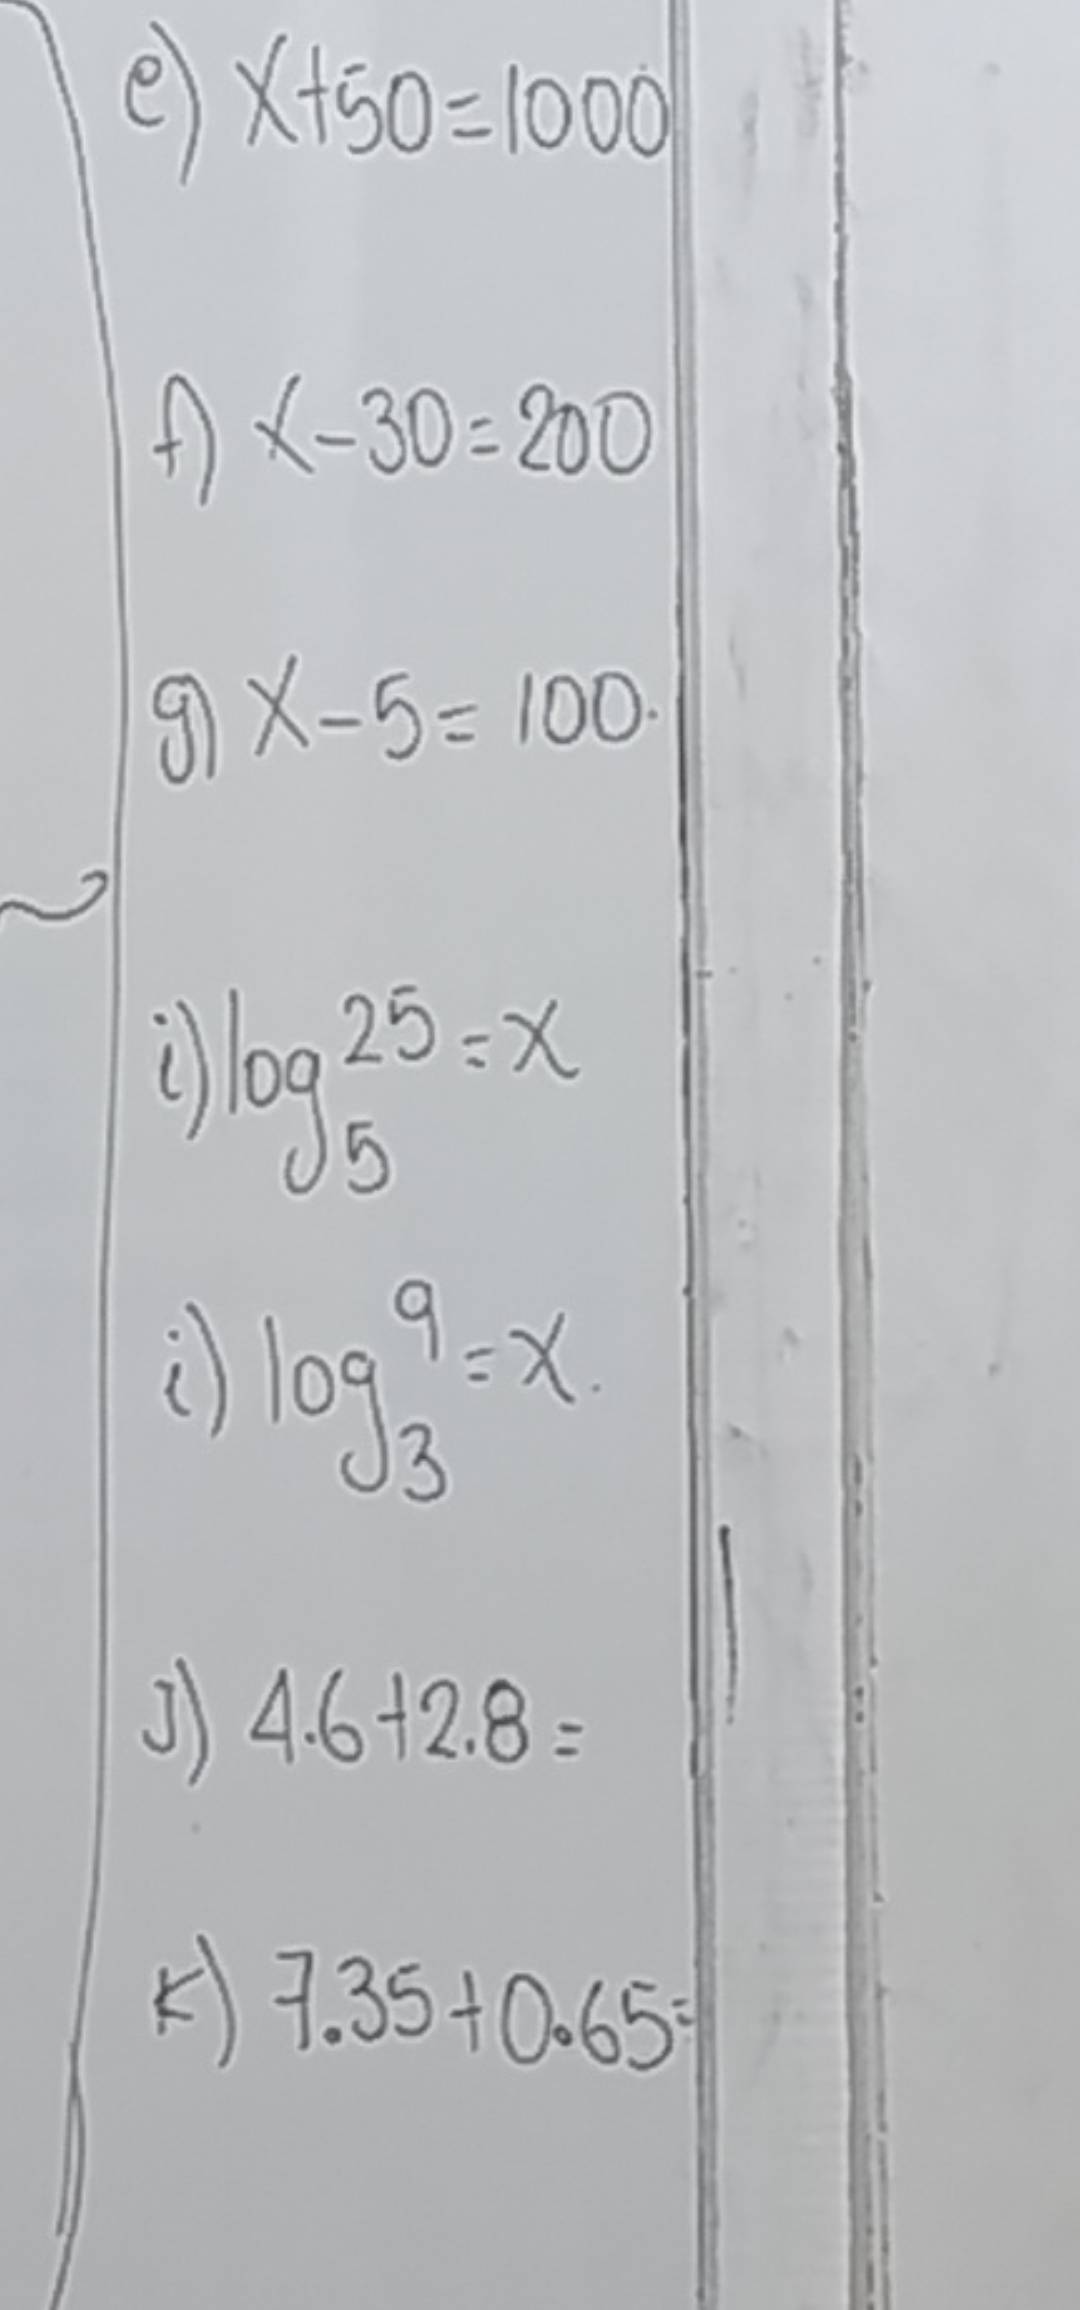 e) x+50=1000
f) x-30=200
g) x-5= 100.
i) log₅²⁵=x
i) log₃⁹=x.
J) 4.6+2.8=
K) 7.35+0.65=